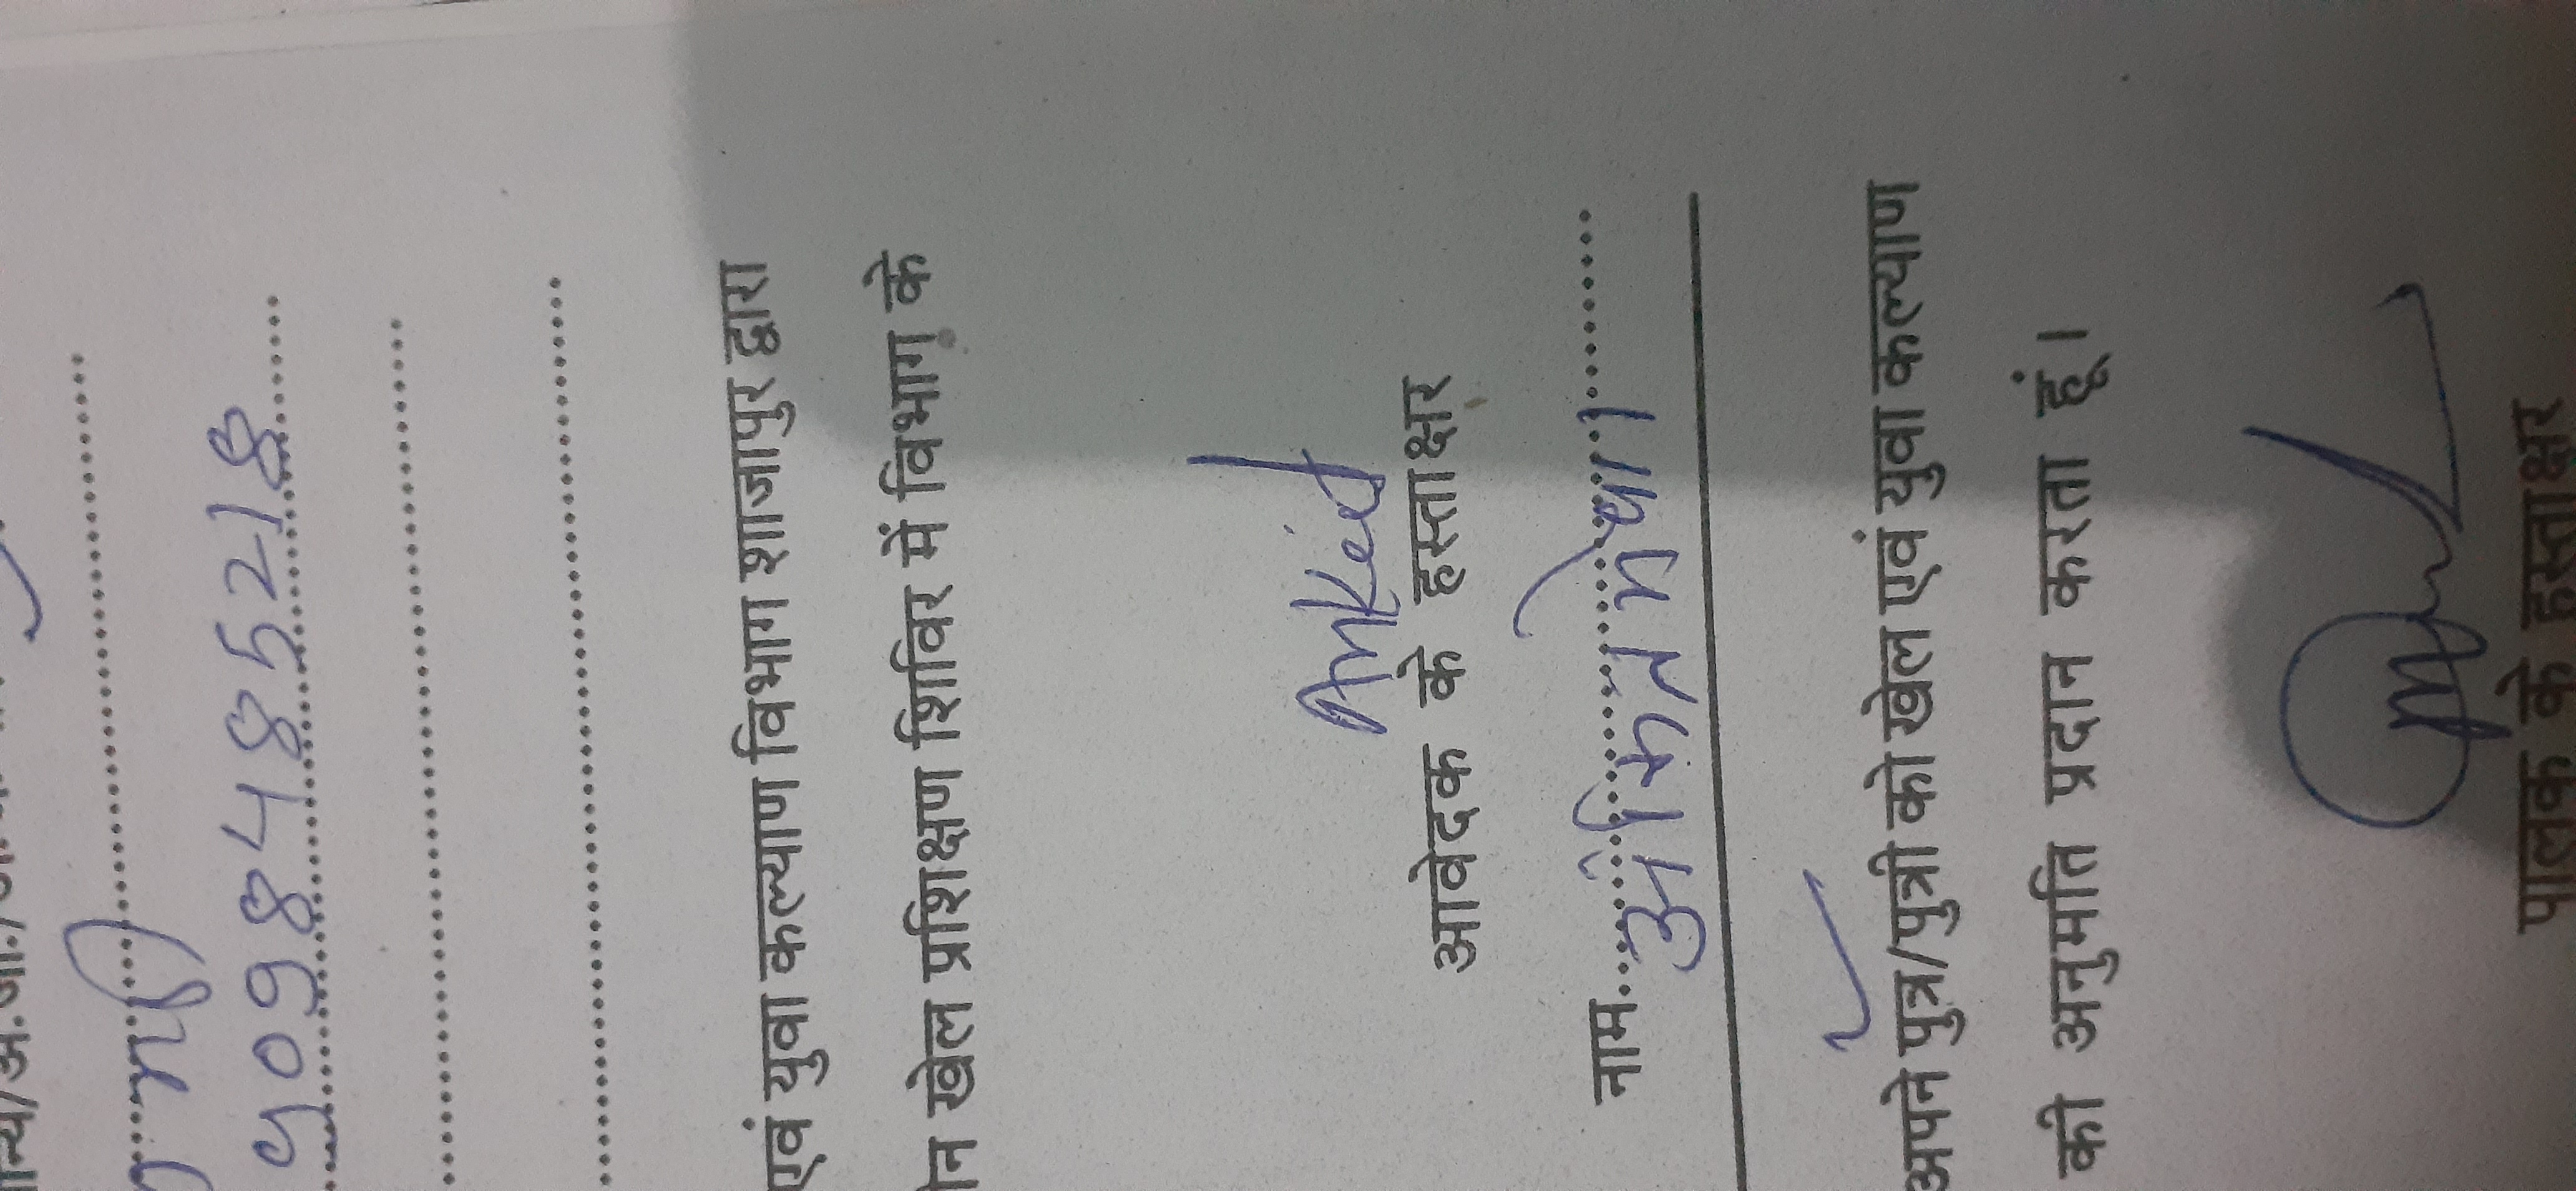 9098485218
एवं युवा कल्याण विभाग शाजापुर द्वारा
खेल प्रशिक्षण शिविर में विभाग के
Ankit
आवेदक के हस्ताक्षर
नाम
अपने पुत्र/पुत्री को खेल एवं युवा कल्याण
की अनुमति प्रदान करता हूं।
पालक के हस्ताक्षर